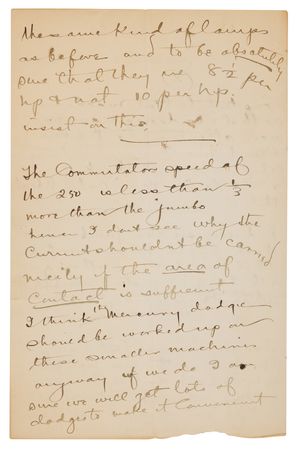 the same kind of Lamps
as before and to be absolutely
sure that they are 8½ per
hp & not 10 per hp.
insist on this.
The Commutator speed of
the 250 is less than ⅓
more than the jumbo
hence I dont see why the
Current shouldnt be carried
nicely if the area of
Contact is sufficient
I think Mercury dodge
should be worked up on
these smaller machines
anyway if we do I am
sure we will get lots of
dodges to make it Convenient